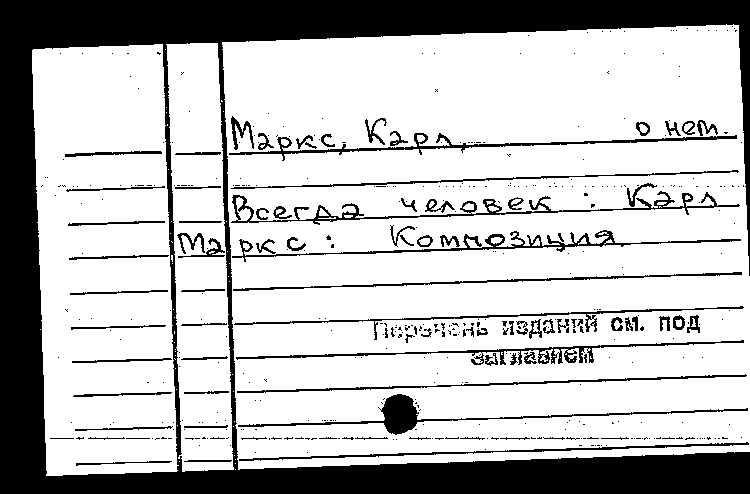 Маркс, Карл, о нем.
Всегда человек : Карл
Маркс : Композиция.
Перечень изданий см. под
заглавием